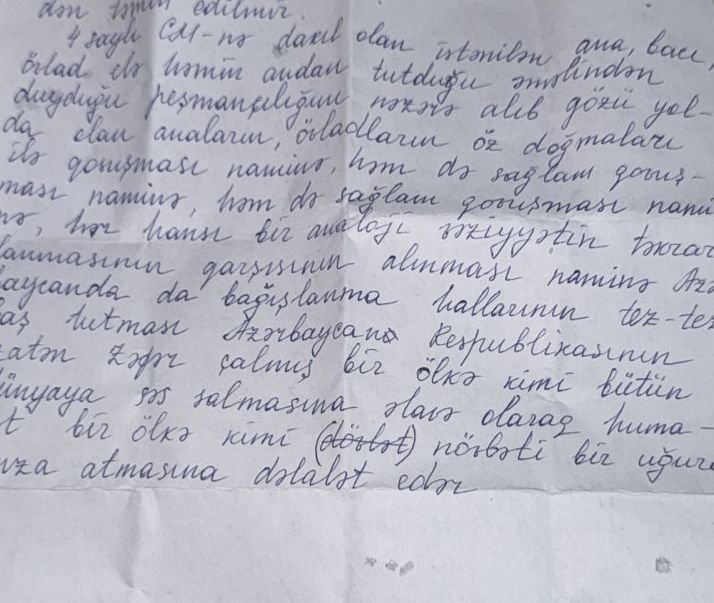 dən təmin edilmir.
4 saylı CM-nə daxil olan istənilən ana, bacı,
övlad elə həmin andan tutduğu əməlindən
duyduğu peşmançılığını nəzərə alıb gözü yol-
da olan anaların, övladların öz doğmaları
ilə qonışması naminə, həm də sağlam gorış-
ması naminə, həm də sağlam gorışması nami
nə, hər hansı bir analoji vəziyyətin təkrar
lanmasının qarşısının alınması naminə Azə
baycanda da bağışlanma hallarının tez-tez
baş tutması Azərbaycana Respublikasının
zatən Zəfər çalmış bir ölkə kimi bütün
ünyaya səs salmasına əlavə olaraq huma-
t bir ölkə kimi (dövlət) növbəti bir uğura
mza atmasına dəlalət edər